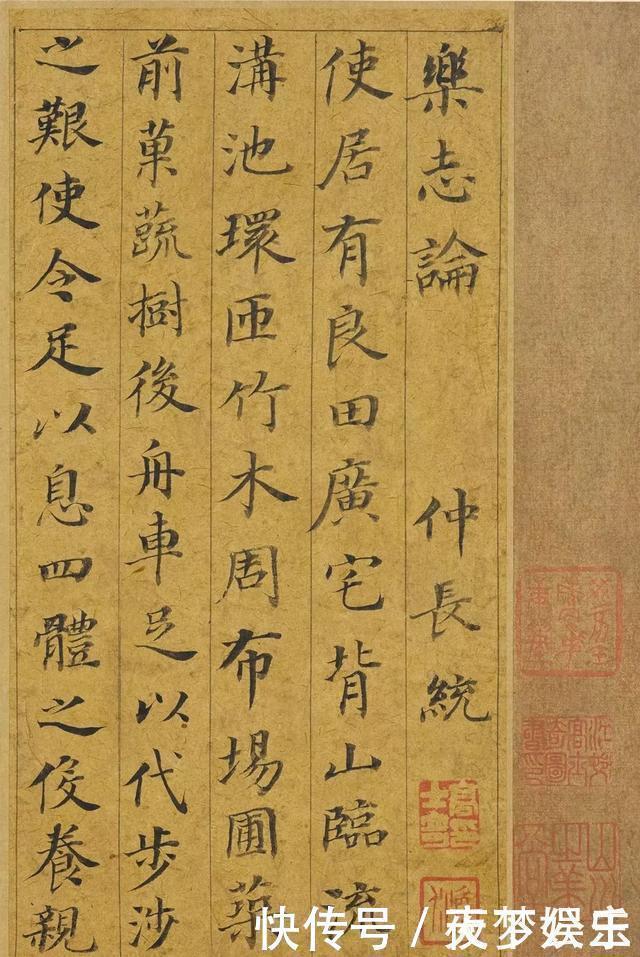 樂志論 仲長統
使居有良田廣宅背山臨流
溝池環匝竹木周布場圃築
前菓蔬樹後舟車足以代步涉
之艱使令足以息四體之役養親
快传号 / 夜梦娱乐